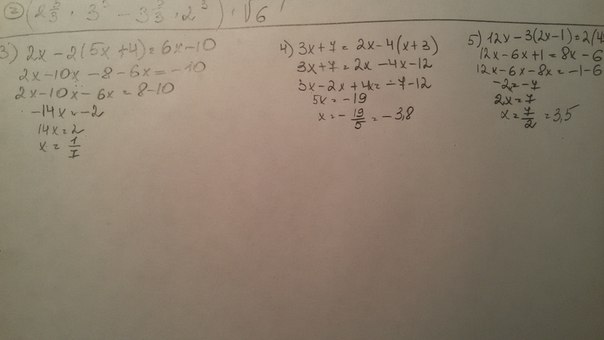 3) 2x - 2(5x+4) = 6x-10
2x-10x-8-6x=-10
2x-10x-6x=8-10
-14x=-2
14x=2
x = 1/7
4) 3x+7 = 2x-4(x+3)
3x+7 = 2x-4x-12
3x-2x+4x=-7-12
5x = -19
x = - 19/5 = -3,8
5) 12x-3(2x-1)=2(4
12x-6x+1 = 8x-6
12x-6x-8x=-1-6
-2=-7
2x=7
x = 7/2 = 3,5